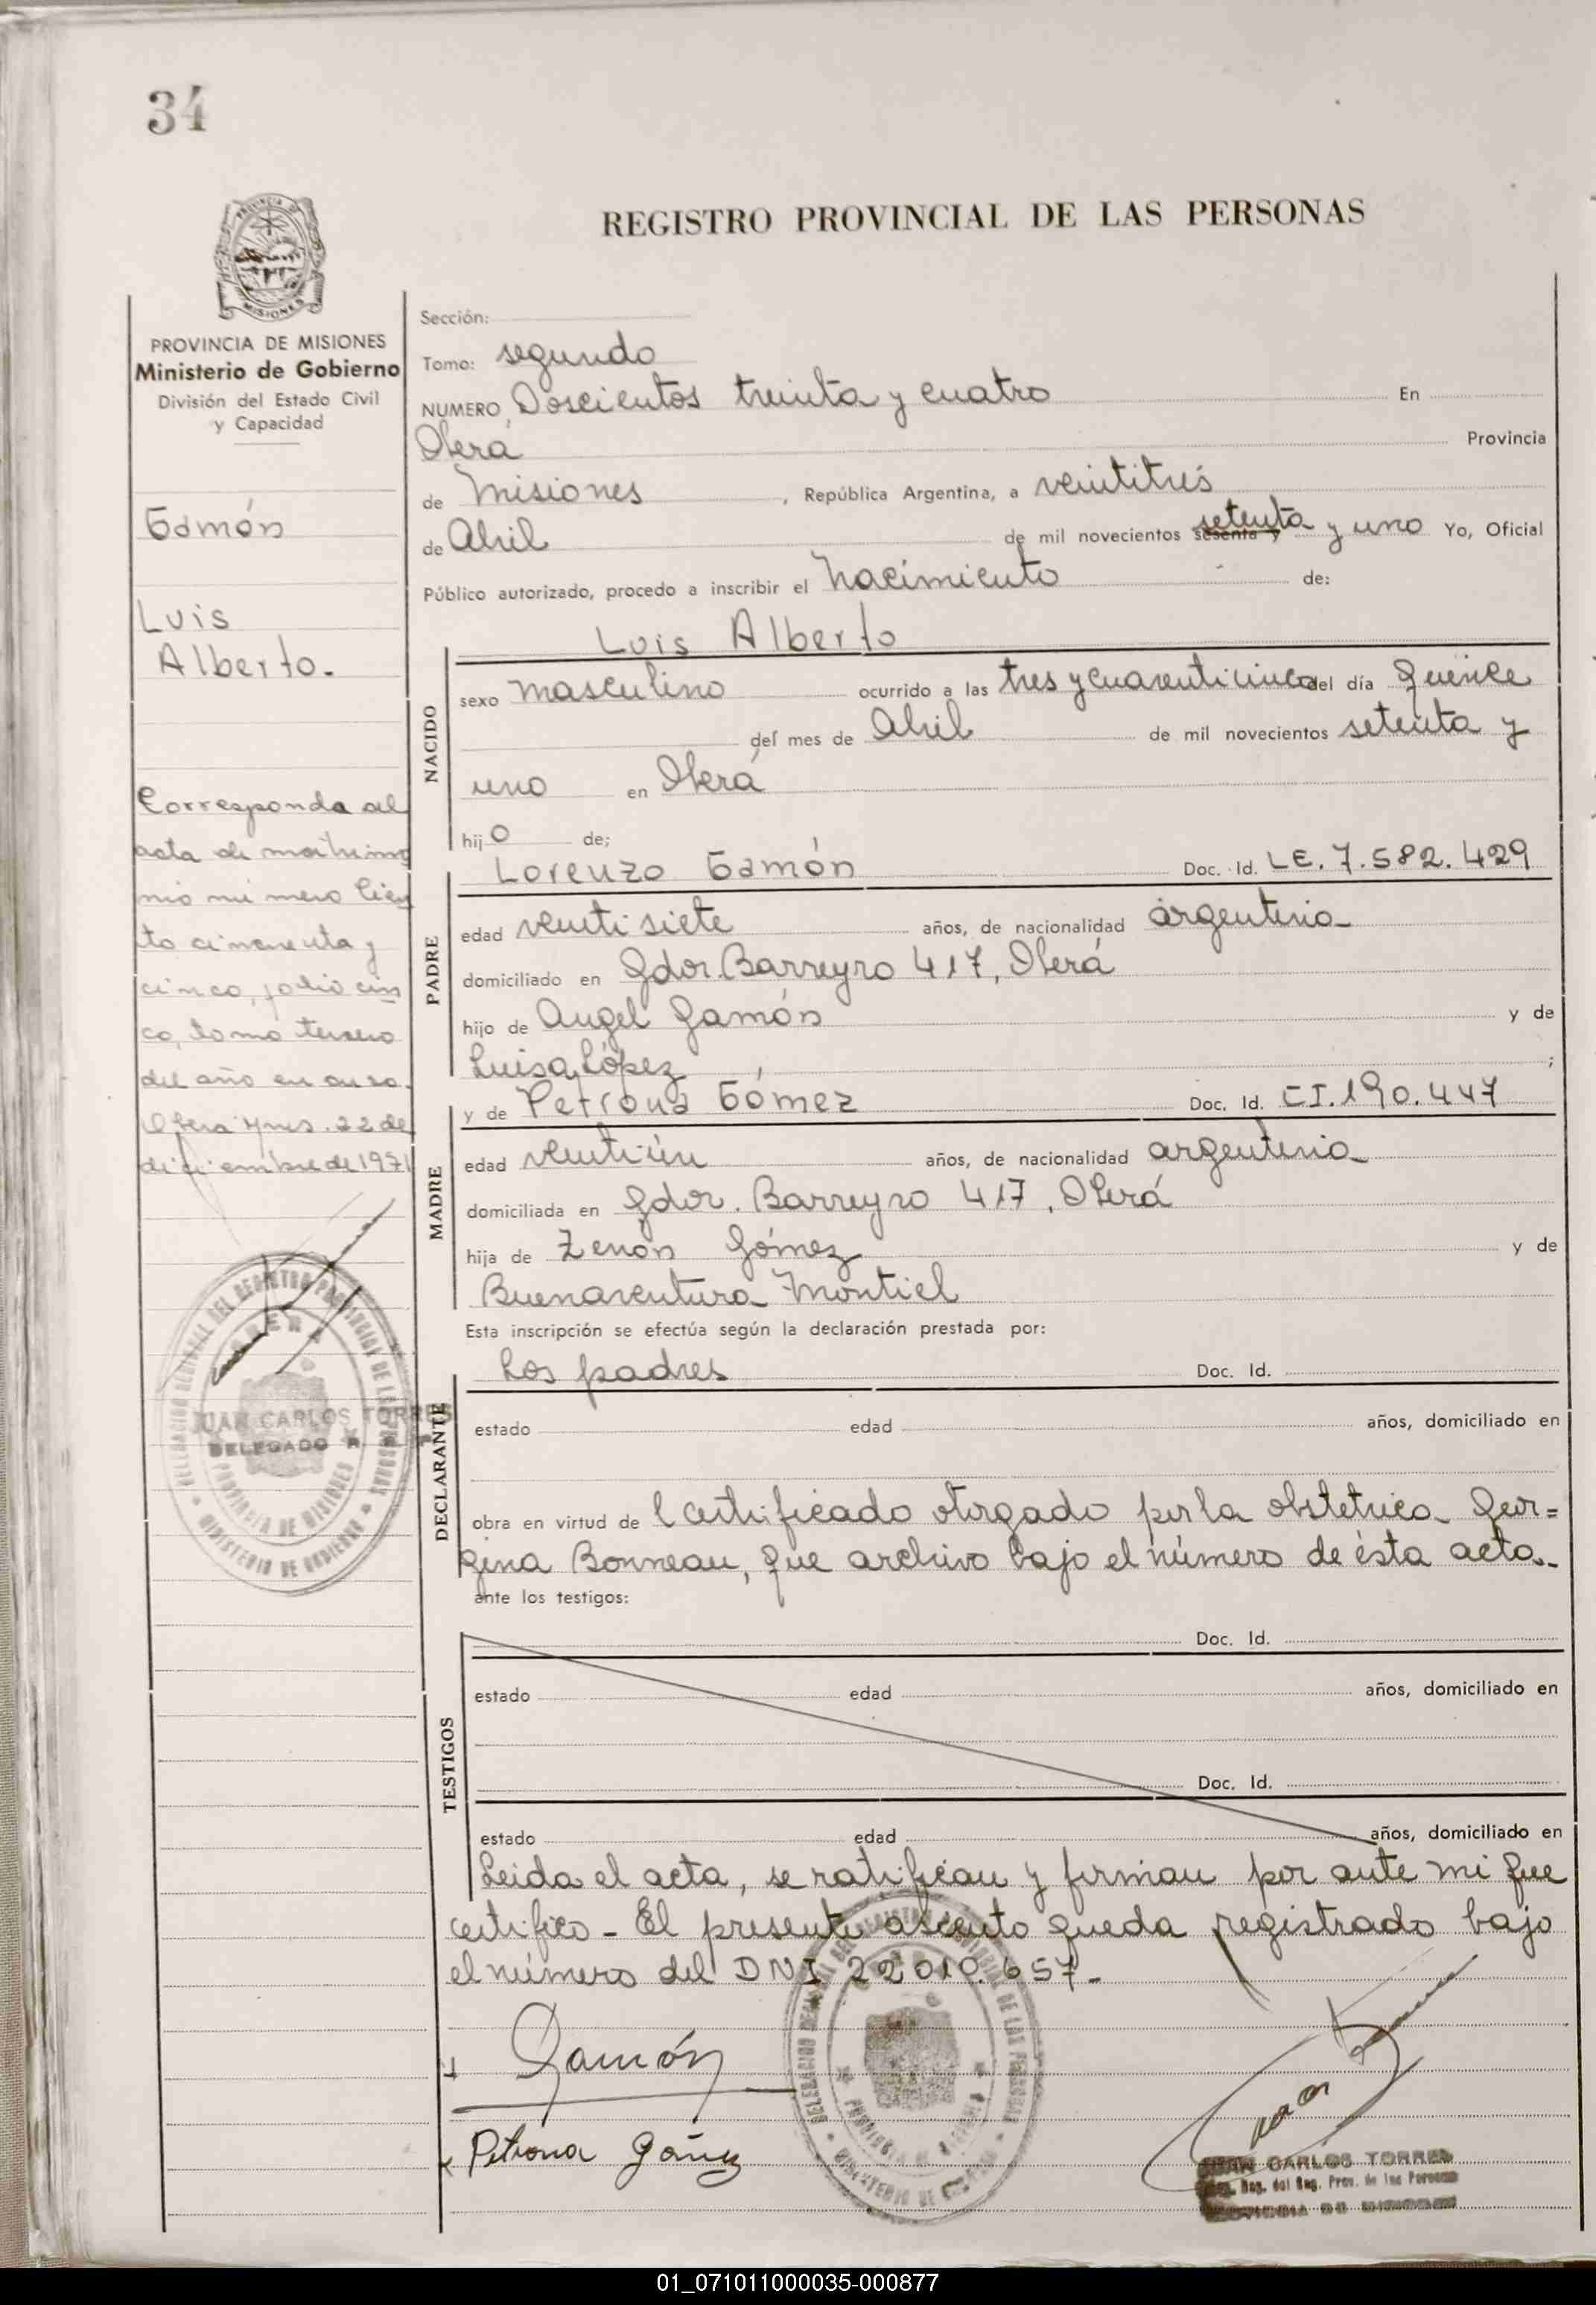 34
REGISTRO PROVINCIAL DE LAS PERSONAS
PROVINCIA DE MISIONES
Ministerio de Gobierno
División del Estado Civil
y Capacidad
Gamón
Luis
Alberto.
Corresponda al
acta de matrimo
nio número cien
to cincuenta y
cinco, folio cin
co, tomo tercero
del año en curso.
Oberá Mnes. 22 de
diciembre de 1971
JUAN CARLOS TORRES
DELEGADO R P P
Sección:
Tomo: segundo
NUMERO Doscientos treinta y cuatro En
Oberá Provincia
de Misiones, República Argentina, a veintitrés
de Abril de mil novecientos sesenta y setenta y uno Yo, Oficial
Público autorizado, procedo a inscribir el Nacimiento de:
Luis Alberto
NACIDO
sexo masculino ocurrido a las tres y cuarenticinco del día quince
del mes de Abril de mil novecientos setenta y
uno en Oberá
hijo de;
Lorenzo Gamón Doc. Id. LE. 7.582.429
PADRE
edad veintisiete años, de nacionalidad argentina
domiciliado en Gdor. Barreyro 417, Oberá
hijo de Angel Gamón y de
Luisa López ;
y de Petrona Gómez Doc. Id. CI. 190.447
MADRE
edad veintiún años, de nacionalidad argentina
domiciliada en Gdor. Barreyro 417, Oberá
hija de Zenón Gómez y de
Buenaventura Montiel
Esta inscripción se efectúa según la declaración prestada por:
Los padres Doc. Id.
DECLARANTE
estado edad años, domiciliado en
obra en virtud de l certificado otorgado por la obstetrica Geor=
gina Bonneau, que archivo bajo el número de ésta acta.-
ante los testigos:
Doc. Id.
TESTIGOS
estado edad años, domiciliado en
Doc. Id.
estado edad años, domiciliado en
Leida el acta, se ratifican y firman por ante mi que
certifico - El presente asiento queda registrado bajo
el número del DNI 22.010.657.-
Gamón
Petrona Gómez
JUAN CARLOS TORRES
Reg. del Reg. Prov. de las Personas
PROVINCIA DE MISIONES
01_071011000035-000877